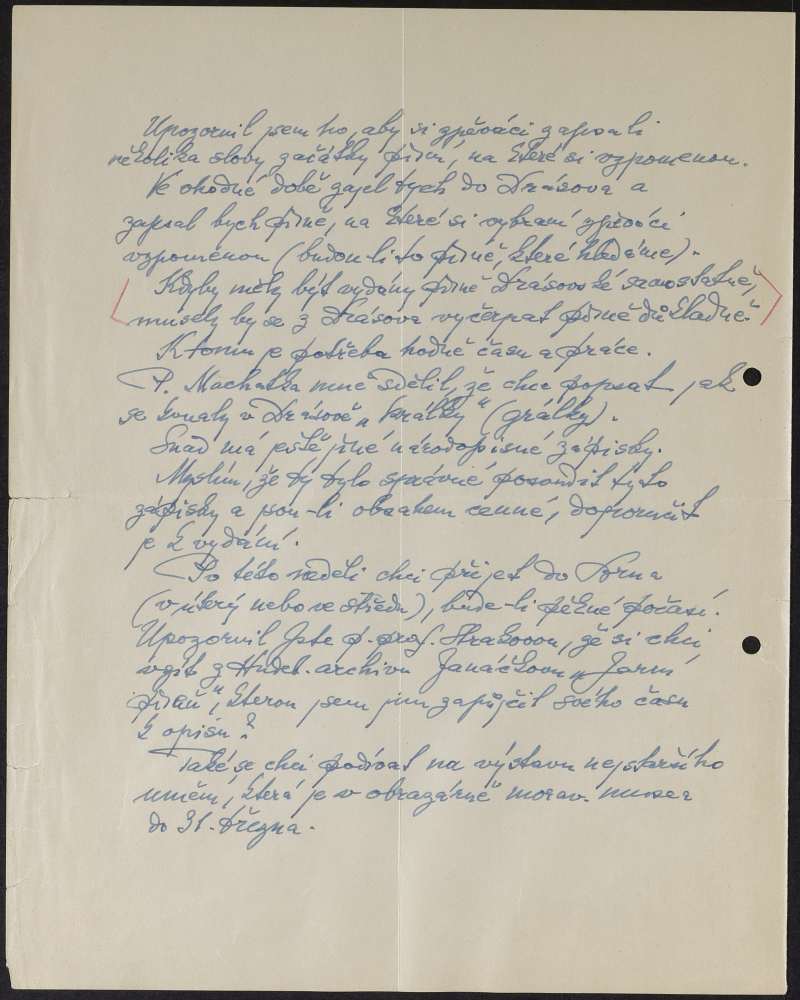 Upozornil jsem ho, aby si zpěváci zapsali
několika slovy začátky písní, na které si vzpomenou.
Ve vhodné době zajel bych do Drásova a
zapsal bych písně, na které si vybraní zpěváci
vzpomenou (budou-li to písně, které hledáme).
Kdyby měly být vydány písně Drásovské samostatně,
musely by se z Drásova vyčerpat písně důkladně.
K tomu je potřeba hodně času a práce.
P. Machatka mně sdělil, že chce popsat, jak
se konaly v Drásově „králky" (grálky).
Snad má ještě jiné národopisné zápisky.
Myslím, že by bylo správné posoudit tyto
zápisky a jsou-li obsahem cenné, doporučit
je k vydání.
Po této neděli chci přijet do Brna
(v úterý nebo ve středu), bude-li pěkné počasí.
Upozornil jste p. prof. Strakovou, že si chci
vzít z Hudeb. archivu Janáčkovu „Jarní
píseň", kterou jsem jim zapůjčil svého času
k opisu?
Také se chci podívat na výstavu nejstaršího
umění, která je v obrazárně morav. musea
do 31. března.